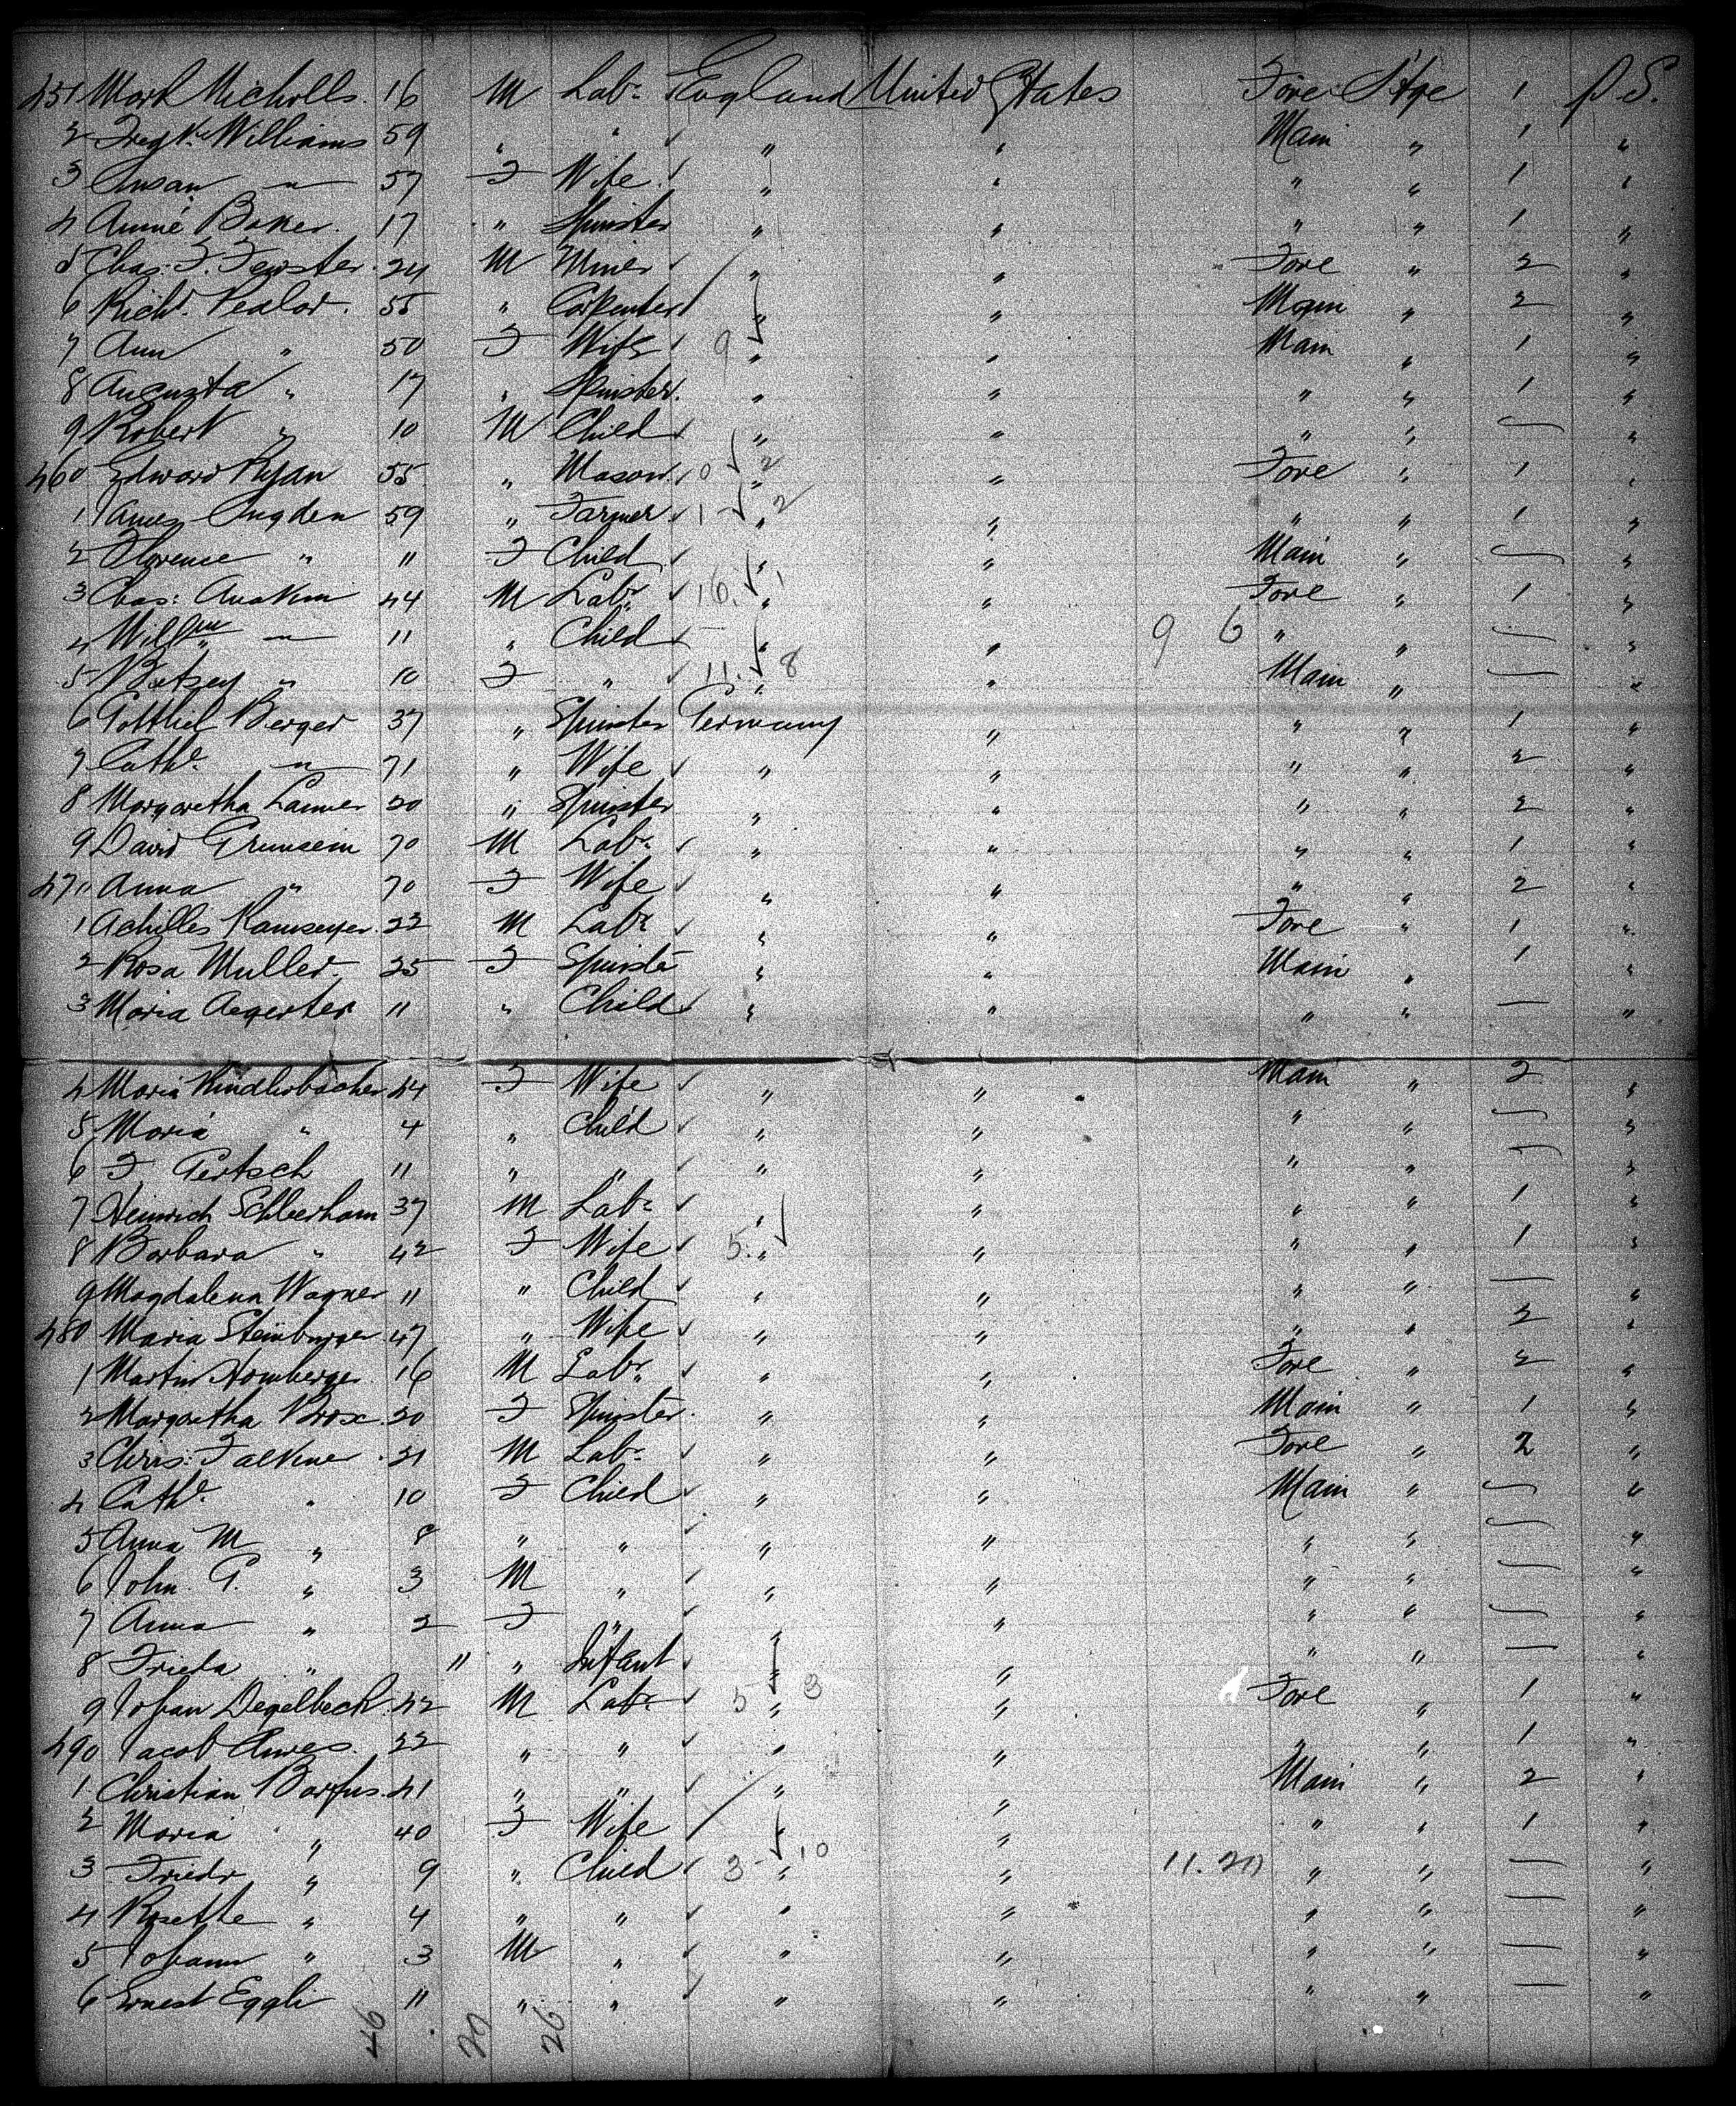 451 Mark Nicholls. 16 M Labr England United States Fore Stge 1 P.S.
2 Fredk Williams 59 " " " " Main " 1 "
3 Susan " 57 F Wife " " " " 1 "
4 Annie Baker. 17 " Spinster " " " " 1 "
5 Chas: F. Fewster. 24 M Miner " " Fore " 2 "
6 Richd. 55 " Carpenter " " Main " 2 "
7 Ann " 50 F Wife 9 " " Main " 1 "
8 Augusta " 17 " Spinster. " " " " 1 "
9 Robert " 10 M Child " " " " — "
460 Edward Ryan 55 " Mason 0 2 " " Fore " 1 "
1 James 59 " Farmer 1 2 " " " " 1 "
2 Florence " 11 F Child " " Main " — "
3 Chas: 44 M Labr 16. 1 " " Fore " 1 "
4 Willm " 11 " Child " " 9 6 " " — "
5 Betsey " 10 F " 11. 8 " " Main " — "
6 Berger 37 " Spinster Germany " " " 1 "
7 Cathe. " 71 " Wife " " " " 2 "
8 Margaretha 20 " Spinster " " " " 2 "
9 David 70 M Labr " " " " 1 "
470 Anna " 70 F Wife " " " " 2 "
1 Achilles Ramseyer. 22 M Labr " " Fore " 1 "
2 Rosa Muller. 25 F Spinster " " Main " 1 "
3 Maria Aegerter 11 " Child " " " " — "
4 Maria 44 F Wife " " Main " 2 "
5 Maria " 4 " Child " " " " — "
6 F Gertsch 11 " " " " " " — "
7 Heinrich 37 M Labr " " " " 1 "
8 Barbara " 42 F Wife 5. " " " " 1 "
9 Magdalena Wagner 11 " Child " " " " — "
480 Maria 47 " Wife " " " " 2 "
1 Martin Homberger 16 M Labr " " Fore " 2 "
2 Margaretha 20 F Spinster. " " Main " 1 "
3 Chris: M Labr " " Fore " 2 "
4 Cathe. " 10 F Child " " Main " — "
5 Anna M " 8 " " " " " " — "
6 John. G. " 3 M " " " " " — "
7 Anna " 2 F " " " " " — "
8 Frieda " 11 " Infant " " " " — "
9 Johan Degelbeck. 42 M Labr 5 3 " " Fore " 1 "
490 Jacob 22 " " " " " " 1 "
1 Christian Barfus. 41 " " " " Main " 2 "
2 Maria " 40 F Wife " " " " 1 "
3 Friedr " 9 " Child 3 10 " " 11. 20 " " — "
4 Rosette " 4 " " " " " " — "
5 Johann " 3 M " " " " " — "
6 Ernest Eggli 11 " " " " " " — "
46 20 26